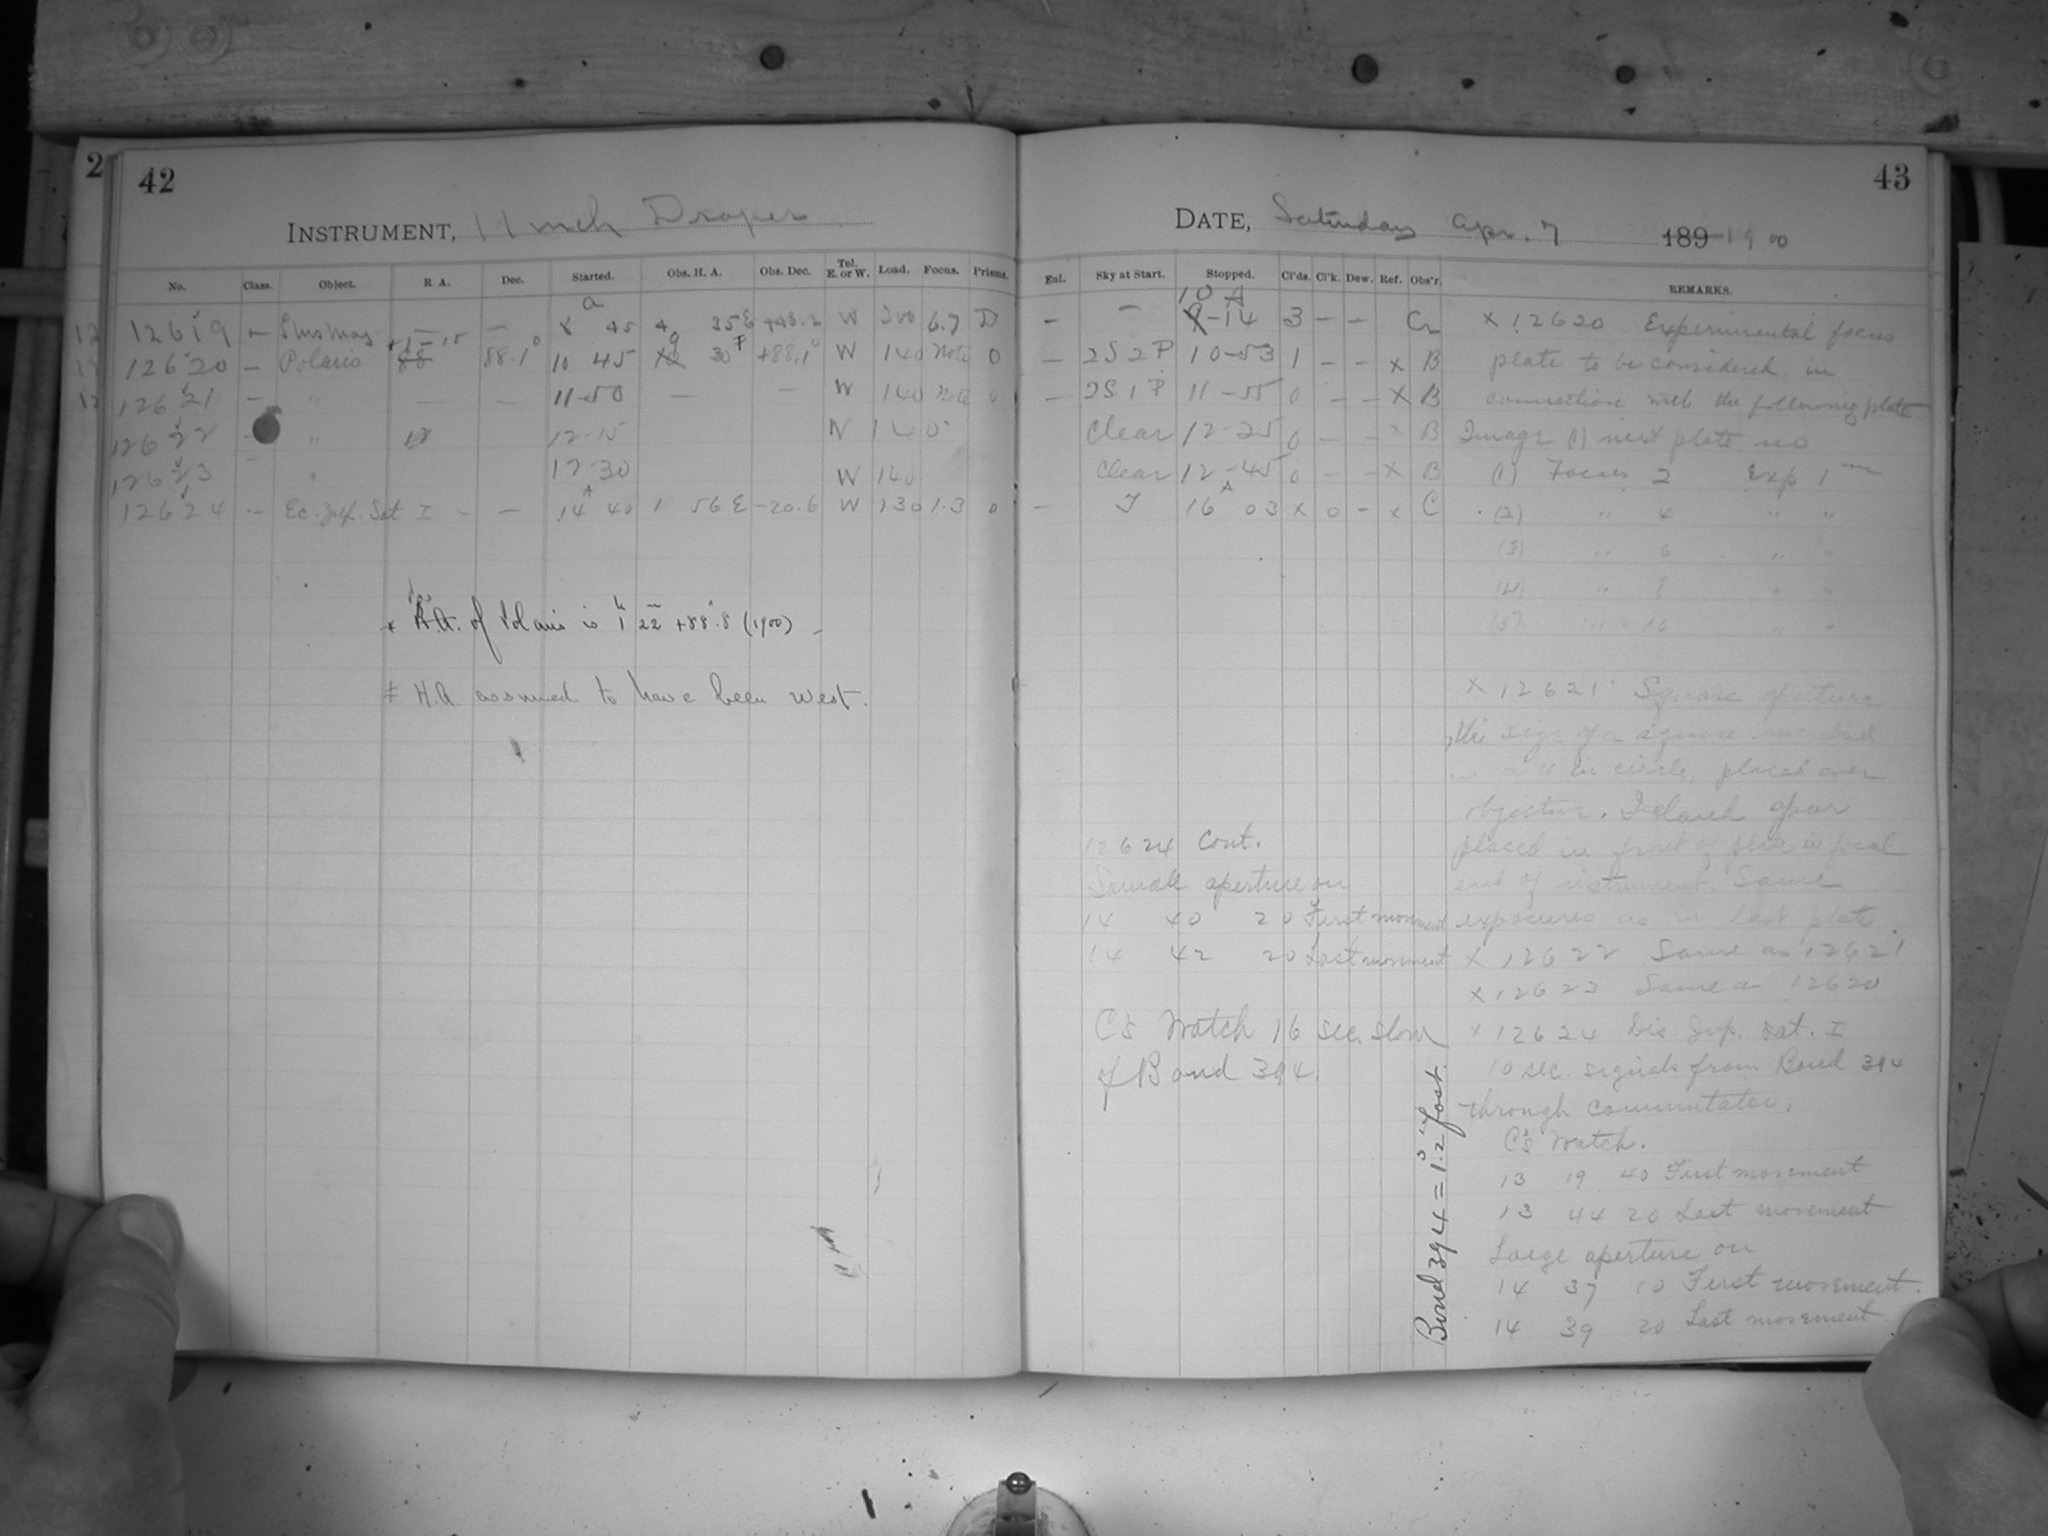 2
42
INSTRUMENT, 11 inch Draper
No. Class. Object. R. A. Dec. Started. Obs. H. A. Obs. Dec. Tel. E. or W. Load. Focus. Prisms.
12619 — — — 8 45 4 35 E W 6.7 D
12620 — Polaris 1-15 88 88.1° 10 45 9 30 +88.1° W 140 Note 0
12621 — " — — 11-50 — — W 140 Note 0
12622 " 12-15 W 140
12623 " 12-30 W 140
12624 — Ec. Jup. Sat I - — 14 40 1 56 E -20.6 W 130 1.3 0
* R.A. of Polaris is 1h 22m +88°.8 (1900)
‡ H.A. assumed to have been west.
43
DATE, Saturday Apr. 7 189 1900
Enl. Sky at Start. Stopped. Cl'ds. Cl'k. Dew. Ref. Obs'r. REMARKS.
— — 10 A 9-14 3 — —
— 2S 2P 10-53 1 — — x B
— 2S 1P 11-55 0 — — x B
Clear 12-25 0 — — x B
Clear 12-45 0 — — x B
— 16 03 x 0 — x C
x 12620 Experimental focus
plate to be considered in
connection with the following plate
Image (1) next plate no
(1) Focus 2 Exp 1m
(2) " 4 " "
(3) " 6 " "
(4) " 8 " "
(5) " 10 " "
x 12621 Square aperture
the size of a square
in circle, placed over
objective. Iceland spar
placed in front of plate in focal
end of instrument. Same
exposures as in last plate
x 12622 Same as 12621
x 12623 Same as 12620
x 12624 Dis. Jup. Sat. I
10 sec. signals from Bond 394
through commutator.
C's Watch.
13 19 40 First movement
13 44 20 Last movement
Large aperture on
14 37 10 First movement.
14 39 20 Last movement
12624 Cont.
Small aperture on
14 40 20 First movement
14 42 20 Last movement
C's Watch 16 sec. slow
of Bond 394.
Bond 394 = 1.2s fast.